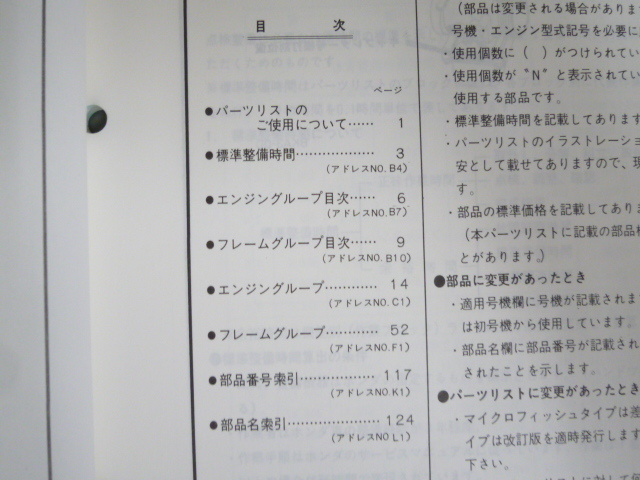 目 次
ページ
●パーツリストの
ご使用について…… 1
●標準整備時間………………… 3
(アドレスNO.B4)
●エンジングループ目次…… 6
(アドレスNO.B7)
●フレームグループ目次…… 9
(アドレスNO.B10)
●エンジングループ………… 14
(アドレスNO.C1)
●フレームグループ………… 52
(アドレスNO.F1)
●部品番号索引……………… 117
(アドレスNO.K1)
●部品名索引………………… 124
(アドレスNO.L1)
(部品は変更される場合がありま
号機・エンジン型式記号を必要に
・使用個数に( )がつけられてい
・使用個数が〝N〟と表示されてい
使用する部品です。
・標準整備時間を記載してあります
・パーツリストのイラストレーショ
安として載せてありますので、現
す。
・部品の標準価格を記載してあり
(本パーツリストに記載の部品
とがあります。)
●部品に変更があったとき
・適用号機欄に号機が記載されま
は初号機から使用しています。
・部品名欄に部品番号が記載され
されたことを示します。
●パーツリストに変更があったとき
・マイクロフィッシュタイプは差
イプは改訂版を適時発行します
下さい。